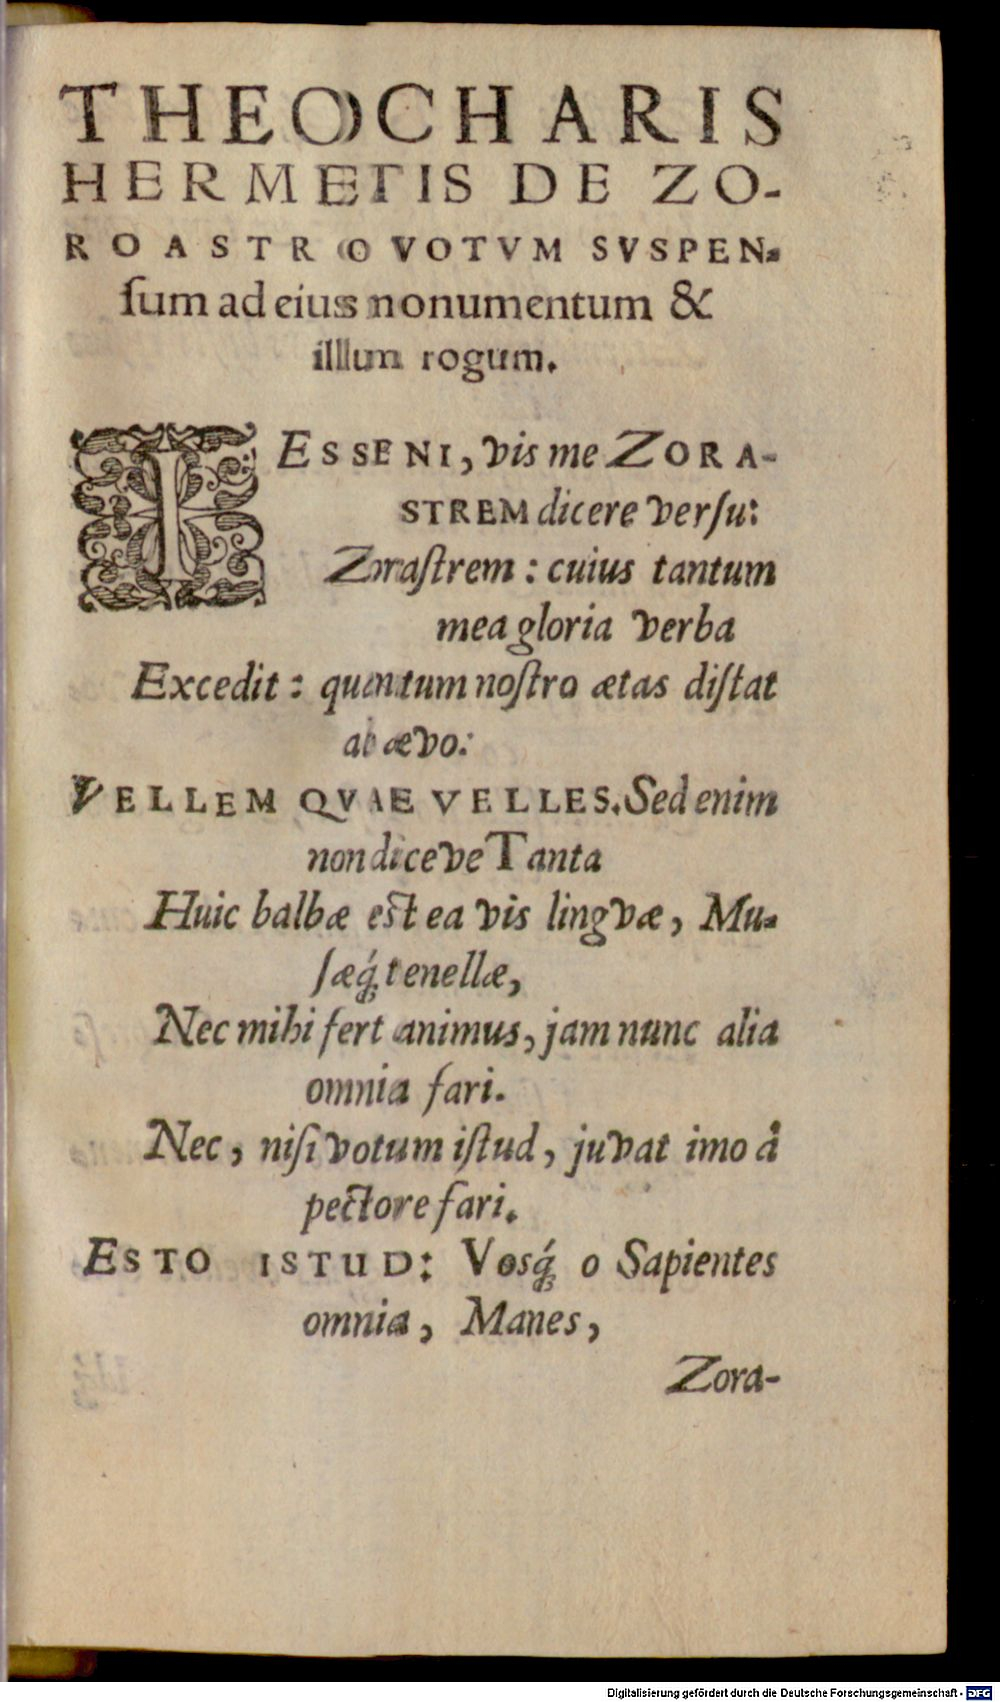 THEOCHARIS
HERMETIS DE ZO-
ROASTRO VOTVM SVSPEN-
ſum ad eius monumentum &
illum rogum.
IESSENI, vis me ZORA-
STREM dicere verſu:
Zoraſtrem: cuius tantum
mea gloria verba
Excedit: quantum noſtro ætas diſtat
ab ævo:
VELLEM QVAE VELLES. Sed enim
non diceve Tanta
Huic balbæ est ea vis lingvæ, Mu-
ſæq́; tenellæ,
Nec mihi fert animus, jam nunc alia
omnia fari.
Nec, niſi votum iſtud, juvat imo â
pectore fari.
ESTO ISTUD: Vosq́; o Sapientes
omnia, Manes,
Zora-
Digitalisierung gefördert durch die Deutsche Forschungsgemeinschaft - DFG